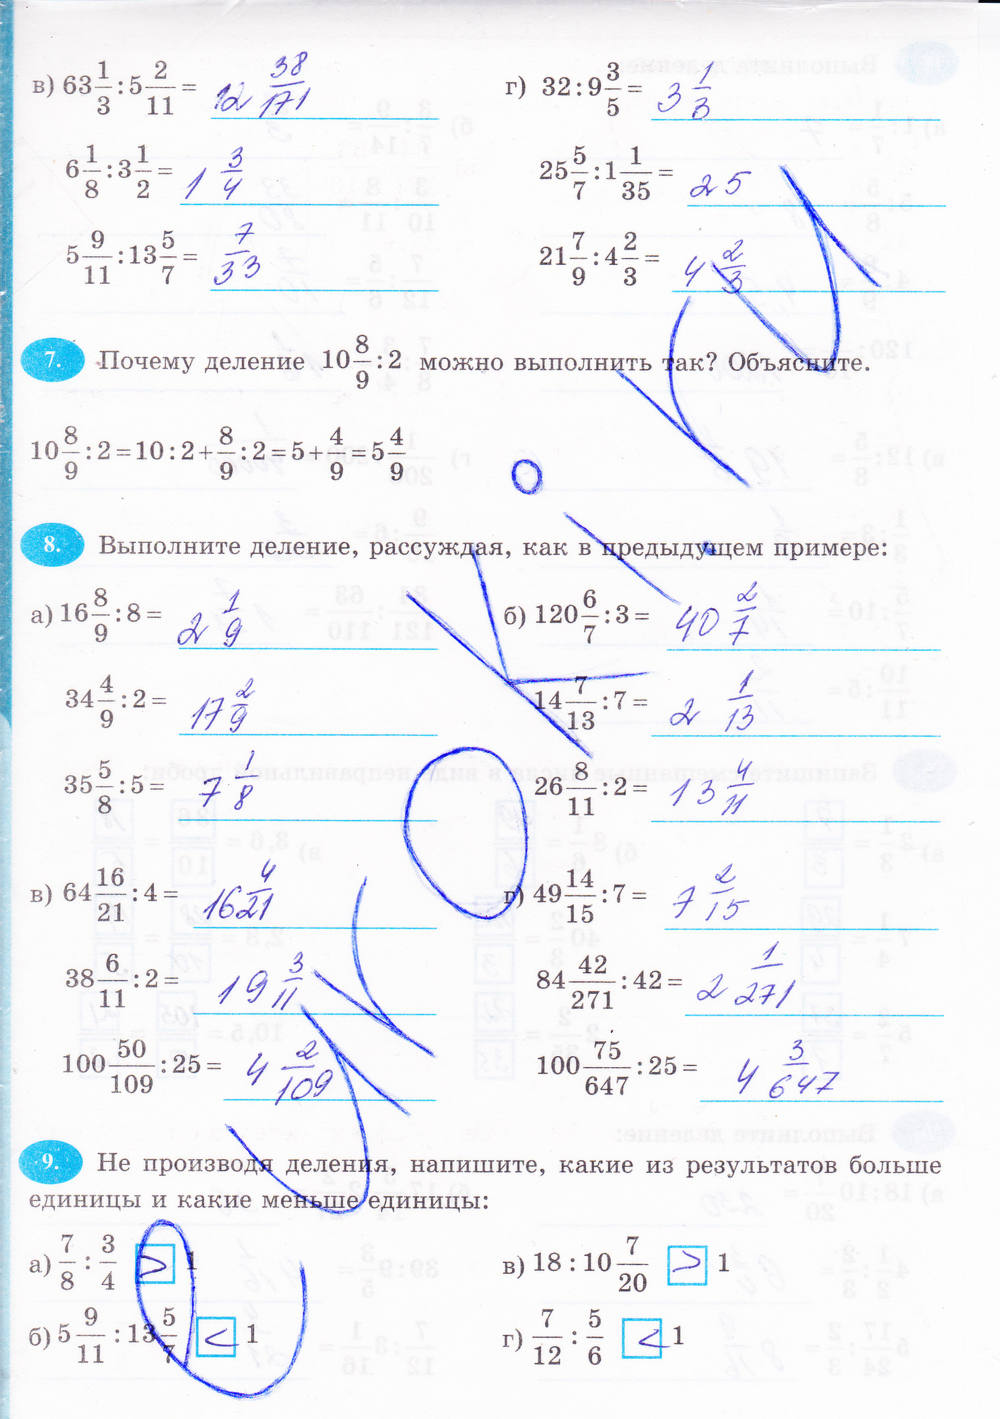 в) 63 1/3 : 5 2/11 = 12 38/171
г) 32 : 9 3/5 = 3 1/3
6 1/8 : 3 1/2 = 1 3/4
25 5/7 : 1 1/35 = 25
5 9/11 : 13 5/7 = 7/33
21 7/9 : 4 2/3 = 4 2/3
7. Почему деление 10 8/9 : 2 можно выполнить так? Объясните.
10 8/9 : 2 = 10 : 2 + 8/9 : 2 = 5 + 4/9 = 5 4/9
8. Выполните деление, рассуждая, как в предыдущем примере:
а) 16 8/9 : 8 = 2 1/9
б) 120 6/7 : 3 = 40 2/7
34 4/9 : 2 = 17 2/9
14 7/13 : 7 = 2 1/13
35 5/8 : 5 = 7 1/8
26 8/11 : 2 = 13 4/11
в) 64 16/21 : 4 = 16 4/21
г) 49 14/15 : 7 = 7 2/15
38 6/11 : 2 = 19 3/11
84 42/271 : 42 = 2 1/271
100 50/109 : 25 = 4 2/109
100 75/647 : 25 = 4 3/647
9. Не производя деления, напишите, какие из результатов больше
единицы и какие меньше единицы:
а) 7/8 : 3/4 > 1
в) 18 : 10 7/20 > 1
б) 5 9/11 : 13 5/7 < 1
г) 7/12 : 5/6 < 1